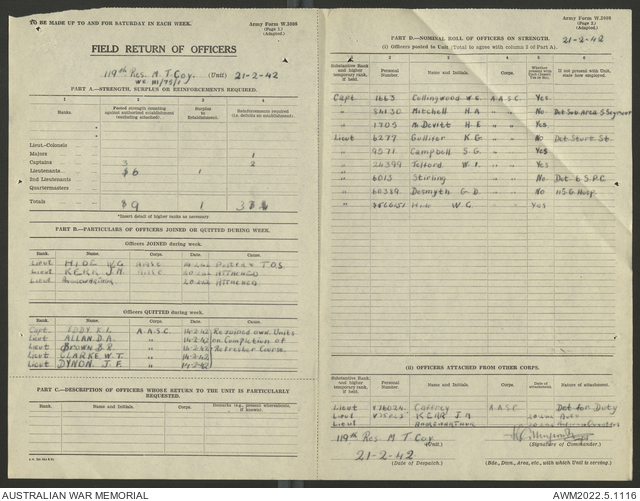 TO BE MADE UP TO AND FOR SATURDAY IN EACH WEEK.
Army Form W.3008
(Page 1)
(Adapted.)
FIELD RETURN OF OFFICERS
119th Res. M. T. Coy. (Unit) 21-2-42
PART A.—STRENGTH, SURPLUS OR REINFORCEMENTS REQUIRED.
1 2 3 4
Ranks.
Posted strength counting against authorized establishment (excluding attached).
Surplus to Establishment.
Reinforcements required (i.e. deficits on establishment).
Lieut.-Colonels
Majors 1
Captains 3 2
Lieutenants 6 1
2nd Lieutenants
Quartermasters
Totals 9 1 3
*Insert detail of higher ranks as necessary
PART B.—PARTICULARS OF OFFICERS JOINED OR QUITTED DURING WEEK.
Officers JOINED during week.
Rank. Name and Initials. Corps. Date. Cause.
Lieut HIDE W.G. T.O.S.
Lieut KERR J.A. ATTACHED
Lieut ATTACHED
Officers QUITTED during week.
Rank. Name and Initials. Corps. Date. Cause.
Capt. EDDY K.L. A.A.S.C. 14-2-42 Rejoined own Units
Lieut ALLAN D.A. " 14-2-42 on Completion of
Lieut BROWN B.R. " 14-2-42 Refresher Course.
Lieut CLARKE W.T. " 14-2-42
Lieut DYNON J.F. " 14-2-42
PART C.—DESCRIPTION OF OFFICERS WHOSE RETURN TO THE UNIT IS PARTICULARLY REQUESTED.
Rank. Name and Initials. Corps. Remarks (e.g., present whereabouts, if known).
Army Form W.3008
(Page 2)
(Adapted.)
PART D.—NOMINAL ROLL OF OFFICERS ON STRENGTH. 21-2-42
(i) Officers posted to Unit (Total to agree with column 2 of Part A).
1 2 3 4 5 6
Substantive Rank and higher temporary rank, if held.
Personal Number.
Name and Initials.
Corps.
Whether present with Unit (Insert Yes or No).
If not present with Unit, state how employed.
Capt 1663 Collingwood W.E. A.A.S.C. Yes
" 34130 Mitchell H A " " No Det Sub Area S Seymour
" 1705 McDevitt H E " " Yes.
Lieut 6277 Gulliver K G " " No Det Sturt St.
" 9571 Campbell S. G. " " Yes
" 24399 Telford W. I. " " Yes
" 6013 Stirling " " No Det 6 S.P.C
" 60359 Desmyth G D. " " No 115 G Hosp.
" W G. " " Yes
(ii) OFFICERS ATTACHED FROM OTHER CORPS.
Substantive Rank and higher temporary rank, if held.
Personal Number.
Name and Initials.
Corps.
Date of attachment.
Nature of attachment.
Lieut V36024 Caffrey A.A.S.C. Det for Duty
Lieut KERR J.A
Lieut
119th Res. M. T. Coy (Unit.)
(Signature of Commander.)
21-2-42
(Date of Despatch.)
(Bde., Divn., Area, etc., with which Unit is serving.)
AUSTRALIAN WAR MEMORIAL
AWM2022.5.1116